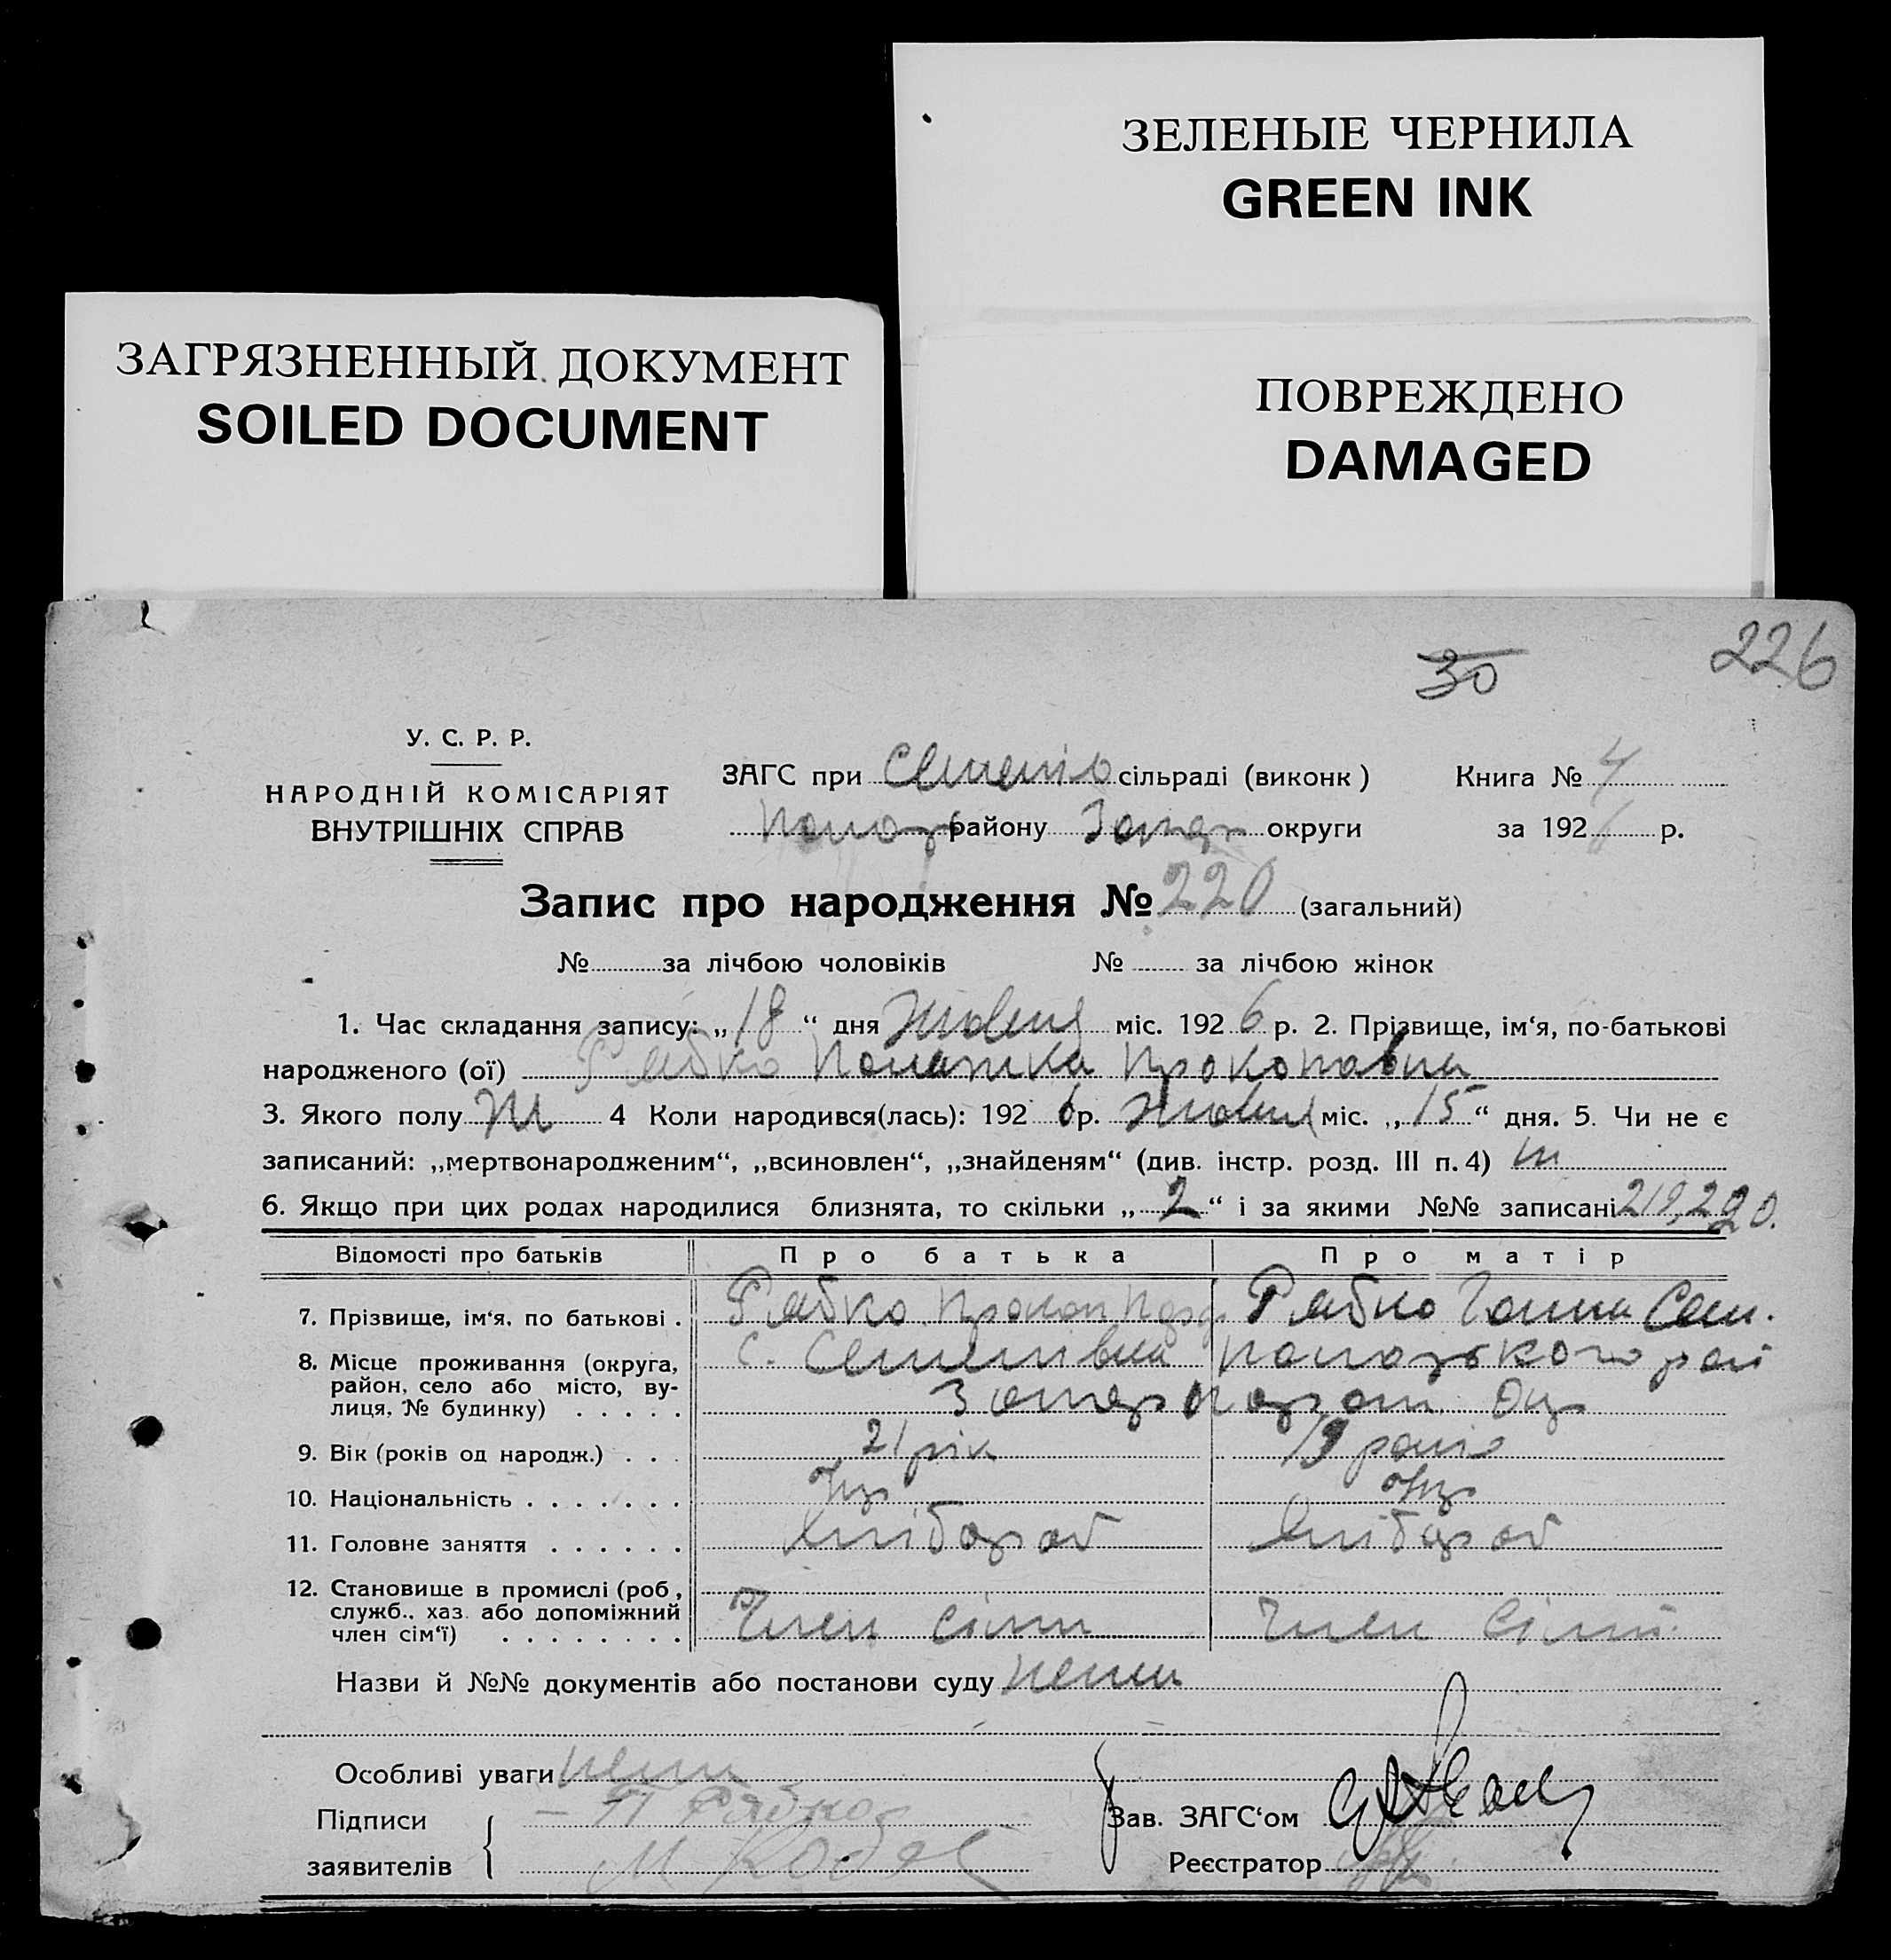 ЗЕЛЕНЫЕ ЧЕРНИЛА
GREEN INK
ЗАГРЯЗНЕННЫЙ ДОКУМЕНТ
SOILED DOCUMENT
ПОВРЕЖДЕНО
DAMAGED
30
226
У. С. Р. Р.
НАРОДНІЙ КОМІСАРІЯТ
ВНУТРІШНІХ СПРАВ
ЗАГС при Семенів сільраді (виконк) Книга № 4
району Запор округи за 1926 р.
Запис про народження № 220 (загальний)
№ за лічбою чоловіків № за лічбою жінок
1. Час складання запису: „18“ дня Жовтня міс. 1926 р. 2. Прізвище, ім‘я, по-батькові
народженого (ої) Рябко Палажка Прокоповна
3. Якого полу Ж 4 Коли народився(лась): 1926 р. Жовтня міс. „15“ дня. 5. Чи не є
записаний: „мертвонародженим“, „всиновлен“, „знайденям“ (див. інстр. розд. III п. 4)
6. Якщо при цих родах народилися близнята, то скільки „2“ і за якими №№ записані 219, 220.
Відомості про батьків Про батька Про матір
7. Прізвище, ім‘я, по батькові . Рябко Прокоп Рябко Ганна Сем.
8. Місце проживання (округа, с. Семенівка рай
район, село або місто, ву-
лиця, № будинку) . . . . . Запоріж Окр
9. Вік (років од народж.) . . . 21 рік 19 років
10. Національність . . . . . . . Укр Укр
11. Головне заняття . . . . . . Хлібороб Хлібороб
12. Становище в промислі (роб.,
служб., хаз. або допоміжний
член сім‘ї) . . . . . . . . Член сімї Член сімї
Назви й №№ документів або постанови суду нема
Особливі уваги нема
Підписи П Рябко Зав. ЗАГС‘ом
заявителів Реєстратор